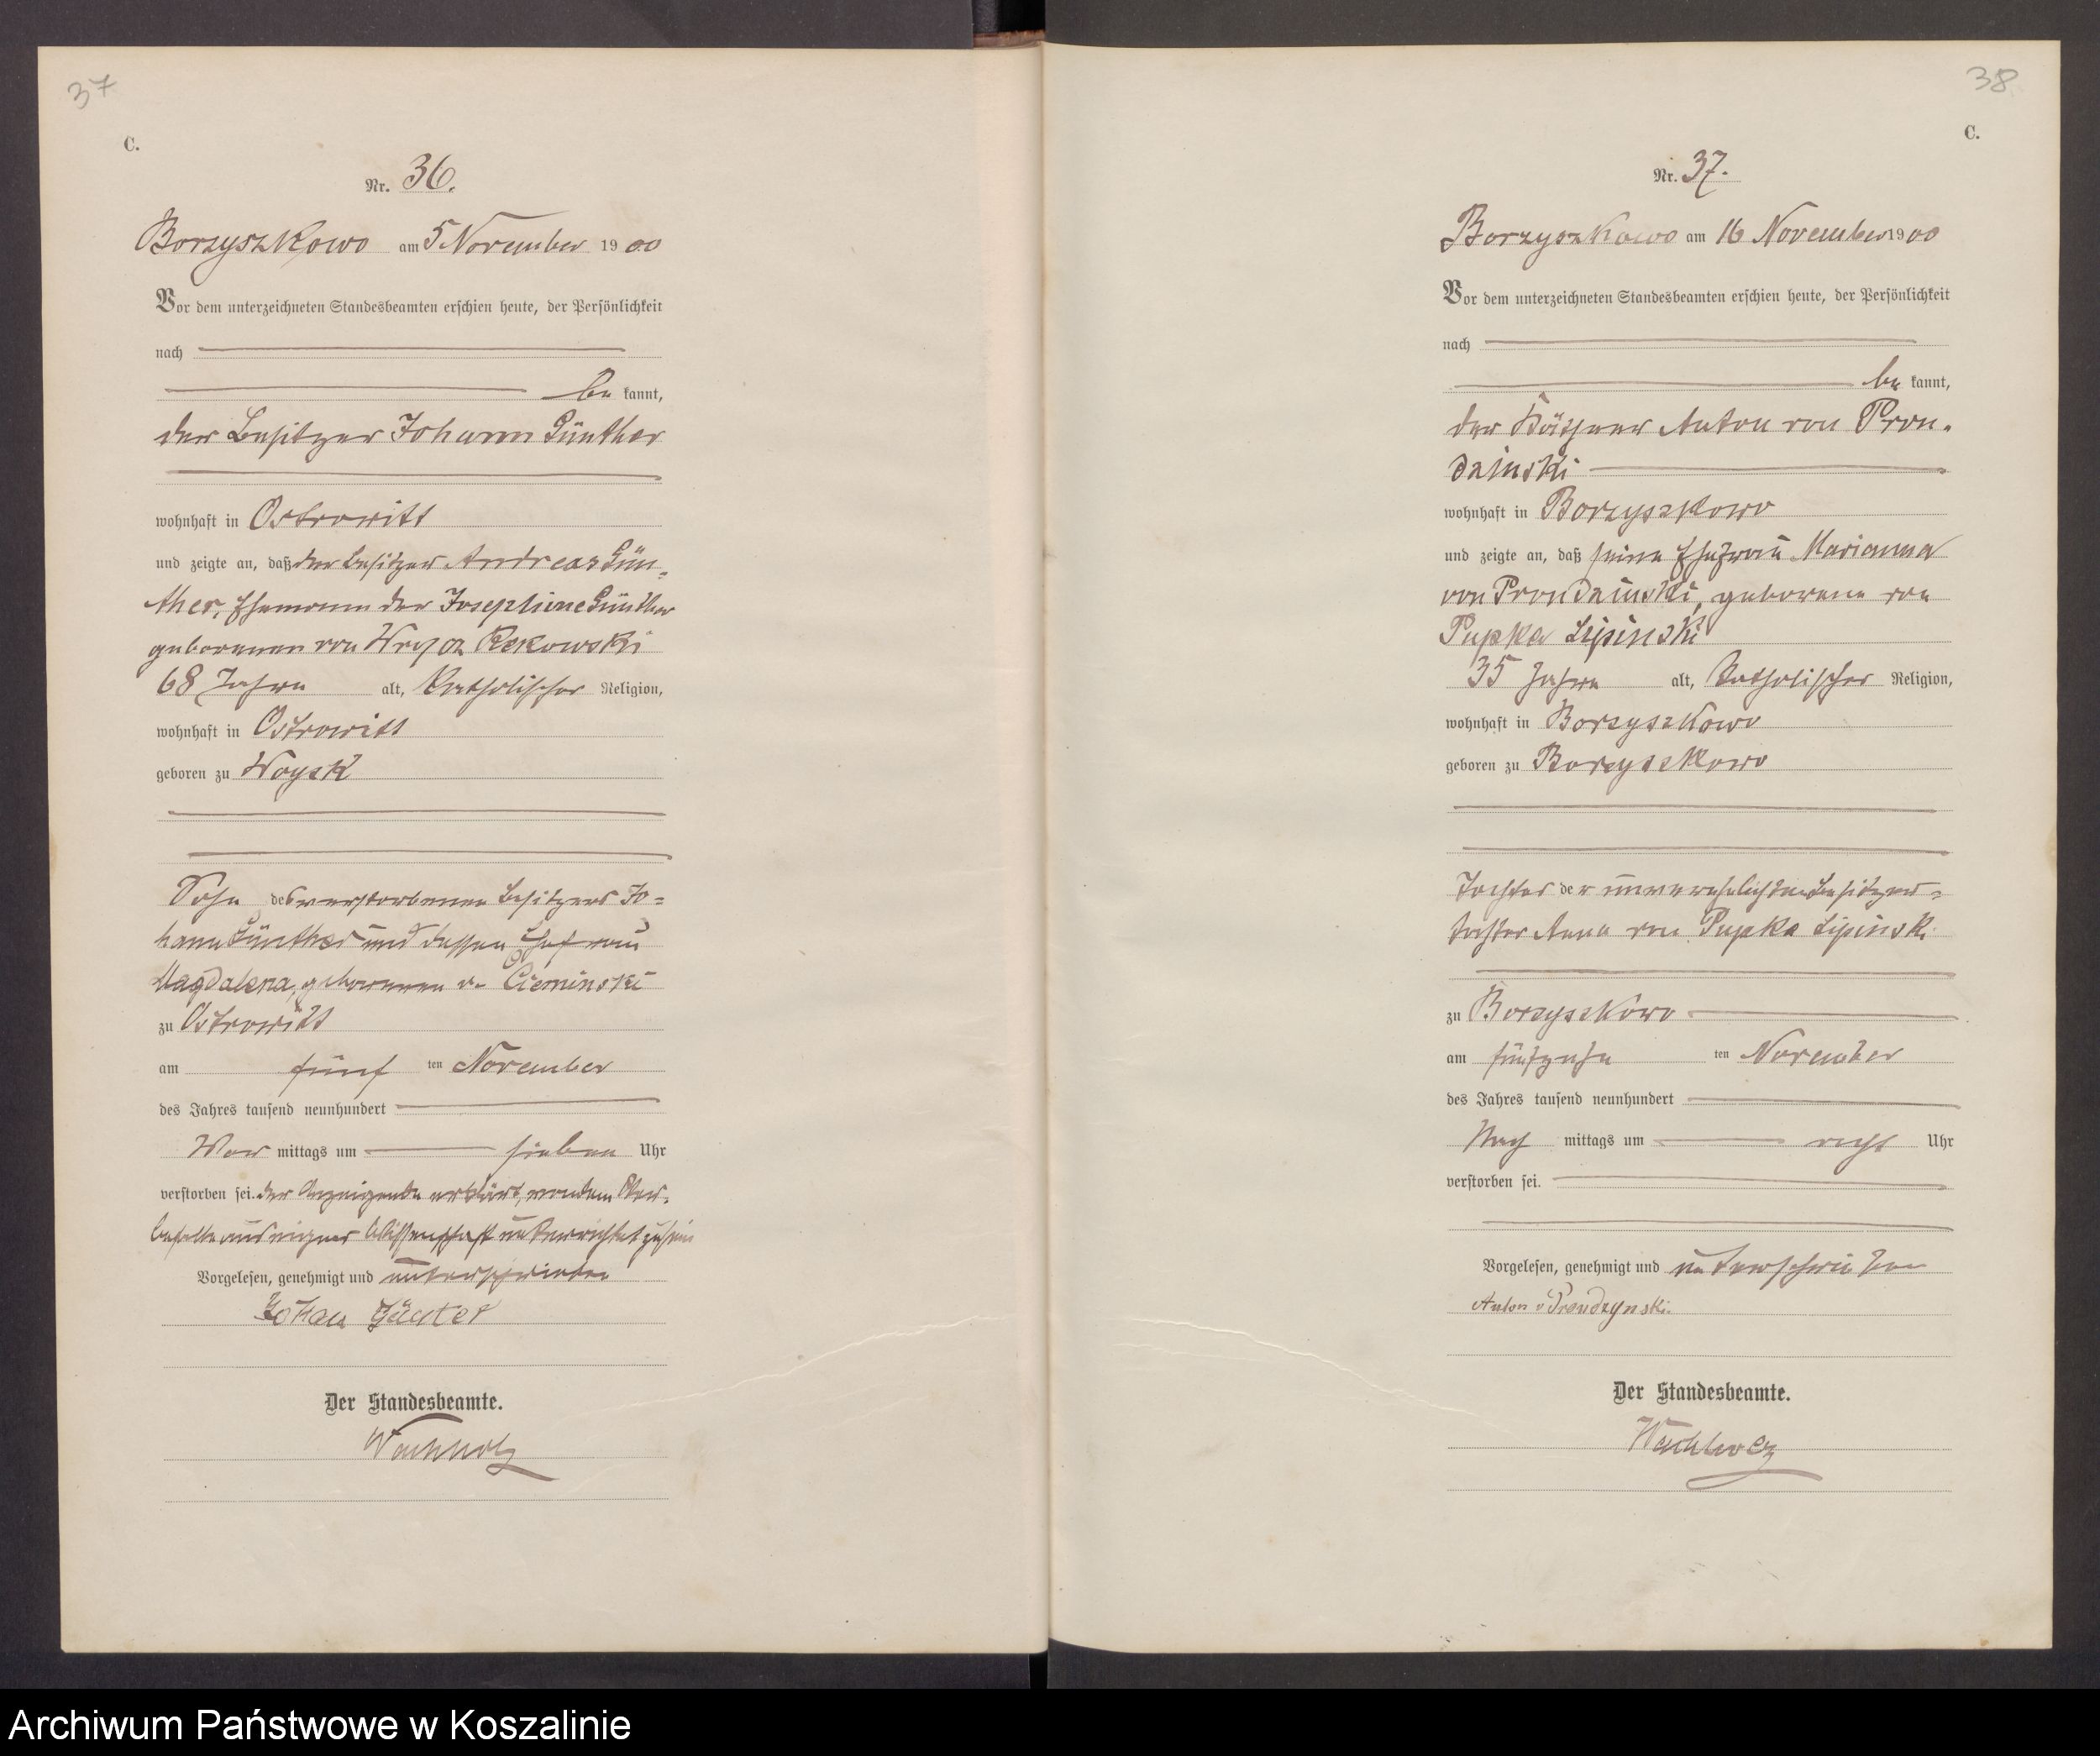 37
C.
Nr. 36.
Borzyszkowo am 5 November 1900
Vor dem unterzeichneten Standesbeamten erschien heute, der Persönlichkeit
nach
be kannt,
der Besitzer Johann Günther
wohnhaft in Ostrowitt
und zeigte an, daß der Besitzer Andreas Gün-
ther, Ehemann der Josephine Günther
geborenen von Wrycz Rekowski
68 Jahre alt, katholischer Religion,
wohnhaft in Ostrowitt
geboren zu Woysk
Sohn des verstorbenen Besitzers Jo=
hann Günther und dessen Ehefrau
Magdalena, geborenen v. Cieminski
zu Ostrowitt
am fünf ten November
des Jahres tausend neunhundert
Vor mittags um sieben Uhr
verstorben sei. Der Anzeigende erklärt, von dem Ster-
befalle aus eigner Wissenschaft unterrichtet zu sein
Vorgelesen, genehmigt und unterschrieben
Johan Günter
Der Standesbeamte.
Wachholz
38
C.
Nr. 37.
Borzyszkowo am 16 November 1900
Vor dem unterzeichneten Standesbeamten erschien heute, der Persönlichkeit
nach
be kannt,
der Käthner Anton von Pron-
dzinski
wohnhaft in Borzyszkowo
und zeigte an, daß seine Ehefrau Marianna
von Prondzinski, geborene von
Pupka Lipinski
35 Jahre alt, katholischer Religion,
wohnhaft in Borzyszkowo
geboren zu Borzyszkowo
Tochter der unverehelichten Besitzer=
tochter Anna von Pupka Lipinski
zu Borzyszkowo
am fünfzehn ten November
des Jahres tausend neunhundert
Nach mittags um acht Uhr
verstorben sei.
Vorgelesen, genehmigt und unterschrieben
Anton v Prondzynski.
Der Standesbeamte.
Wachholz
Archiwum Państwowe w Koszalinie